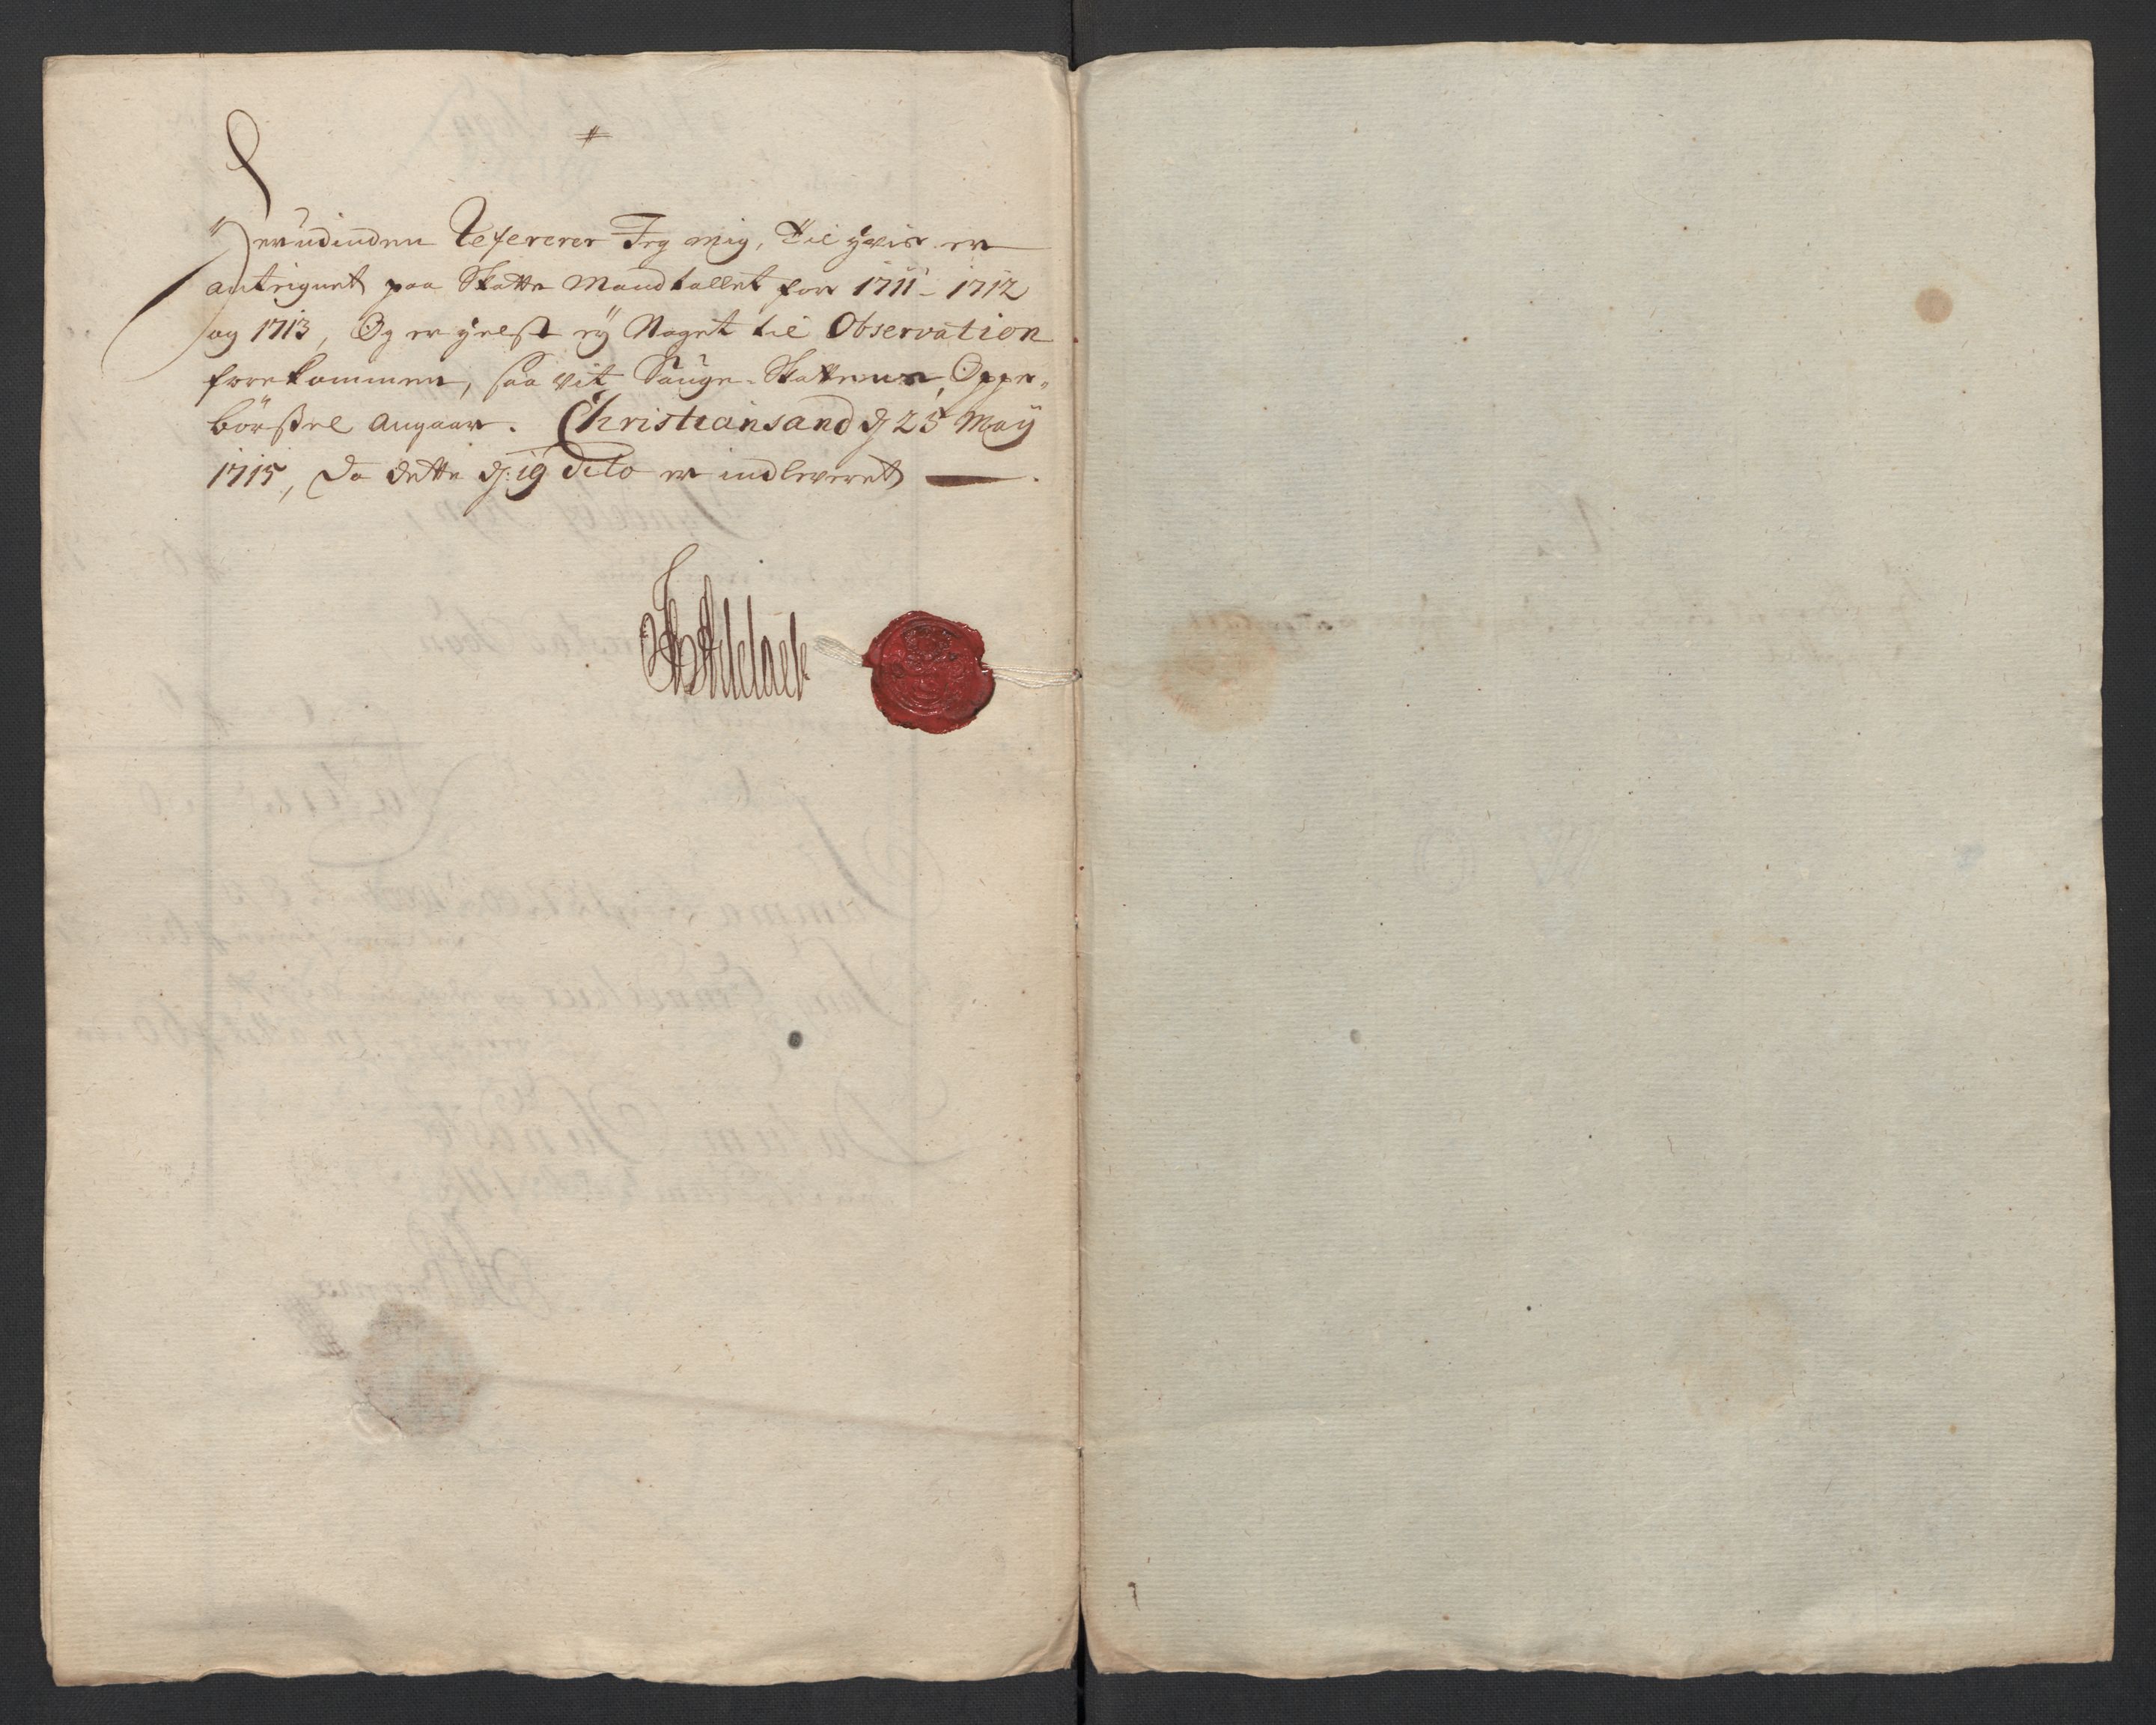 #
Herudinden Refererer Jeg mig, Til hvis er
antegnet paa Skatte Mandtallet for 1711 - 1712
og 1713, Og er helst ey Noget til Observation
forekommen, saa vit Sauge-Skattens Oppe-
børsel angaar. Christiansand d 25 May
1715, Da dette d: 19 dito er indleveret